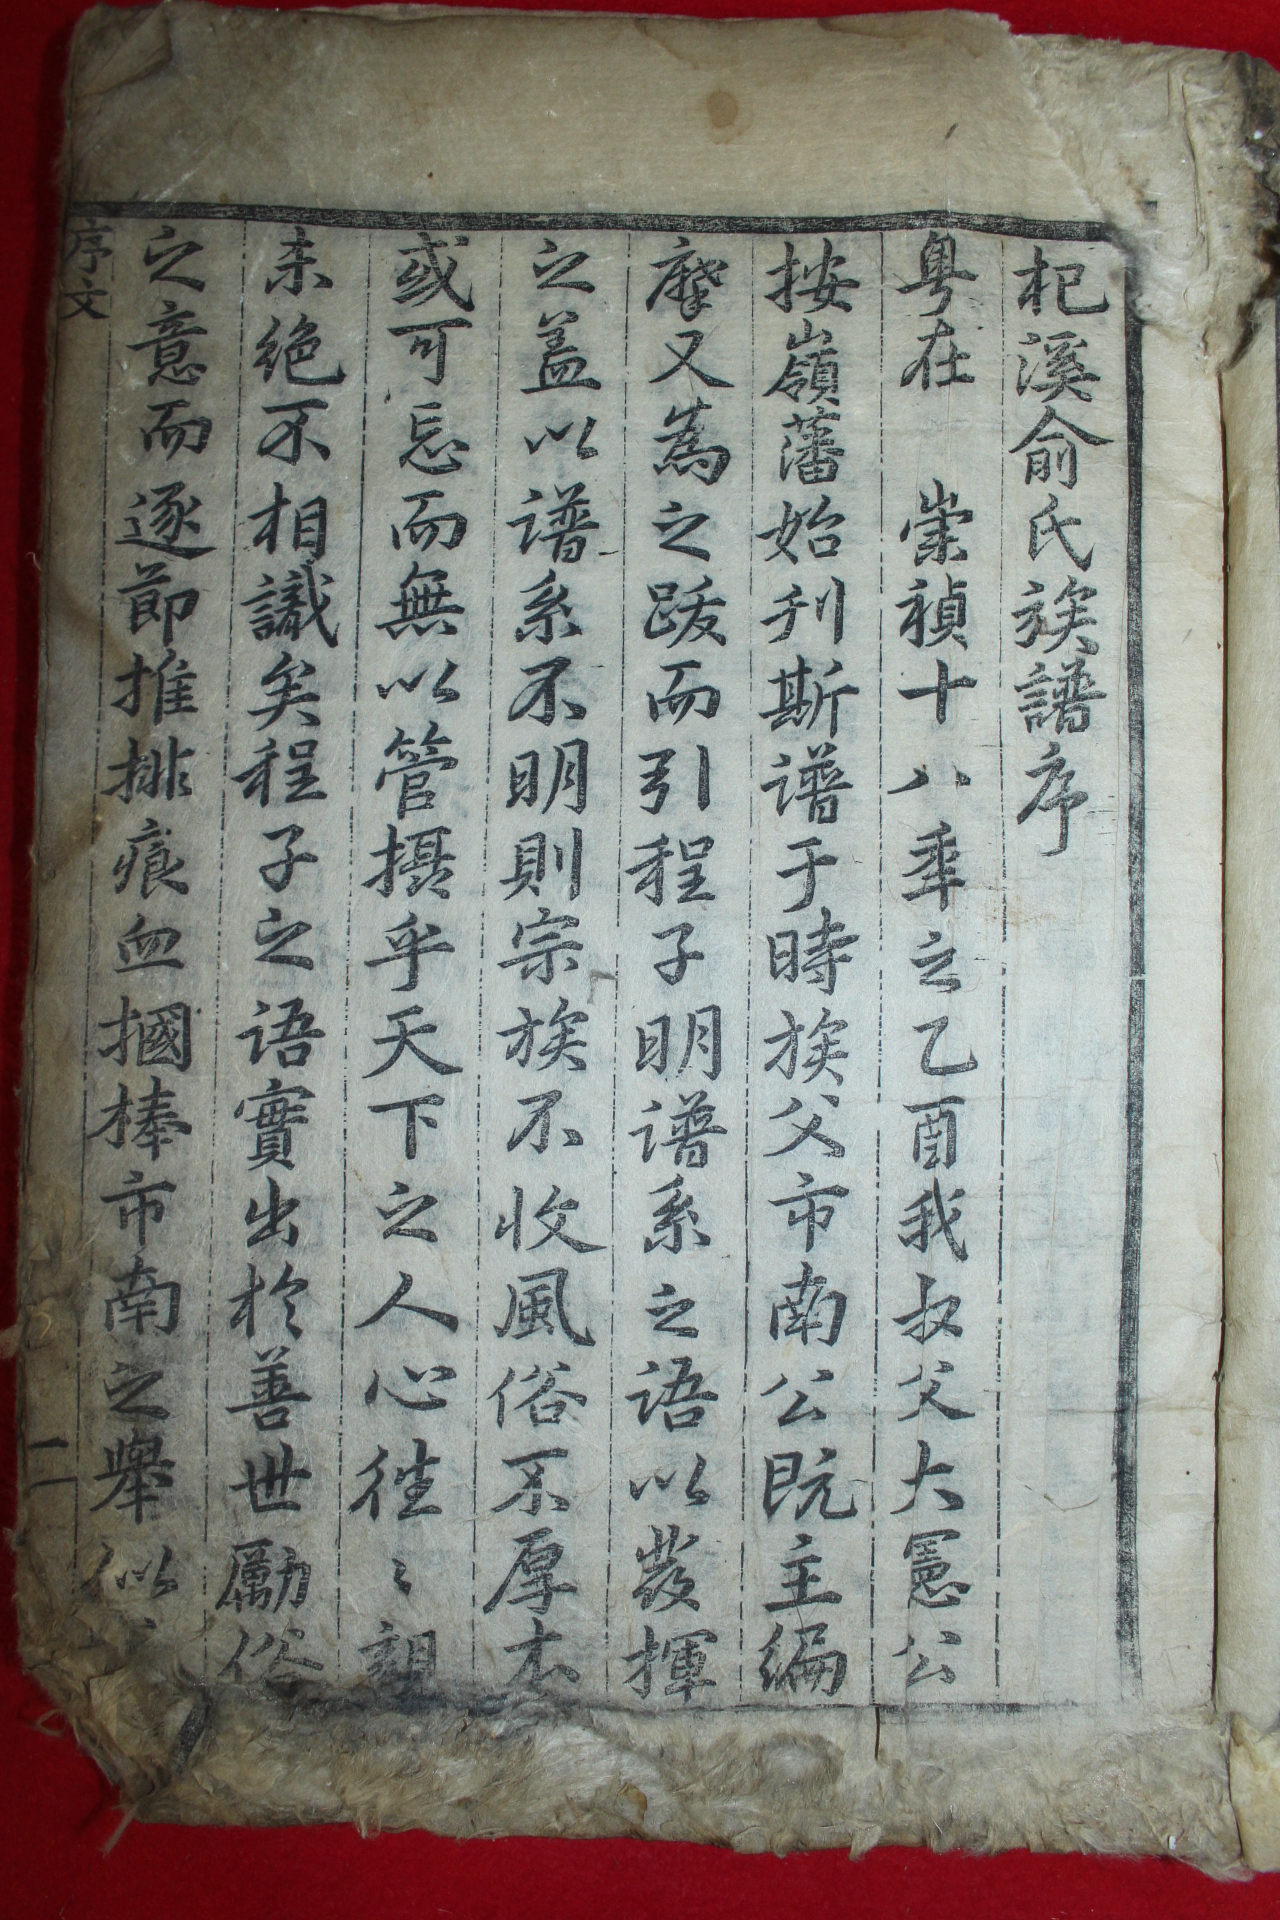 杞溪俞氏族譜序
粤在 崇禎十八年之乙酉我叔父大憲公
按嶺藩始刋斯譜于時族父市南公旣主編
摩又為之跋而引程子明譜系之語以發揮
之盖以譜系不明則宗族不收風俗不厚本
或可忘而無以管攝乎天下之人心徃〻親
未絶不相識矣程子之語實出於善世勵俗
之意而逐節推排痕血摑棒市南之擧似
序文
二